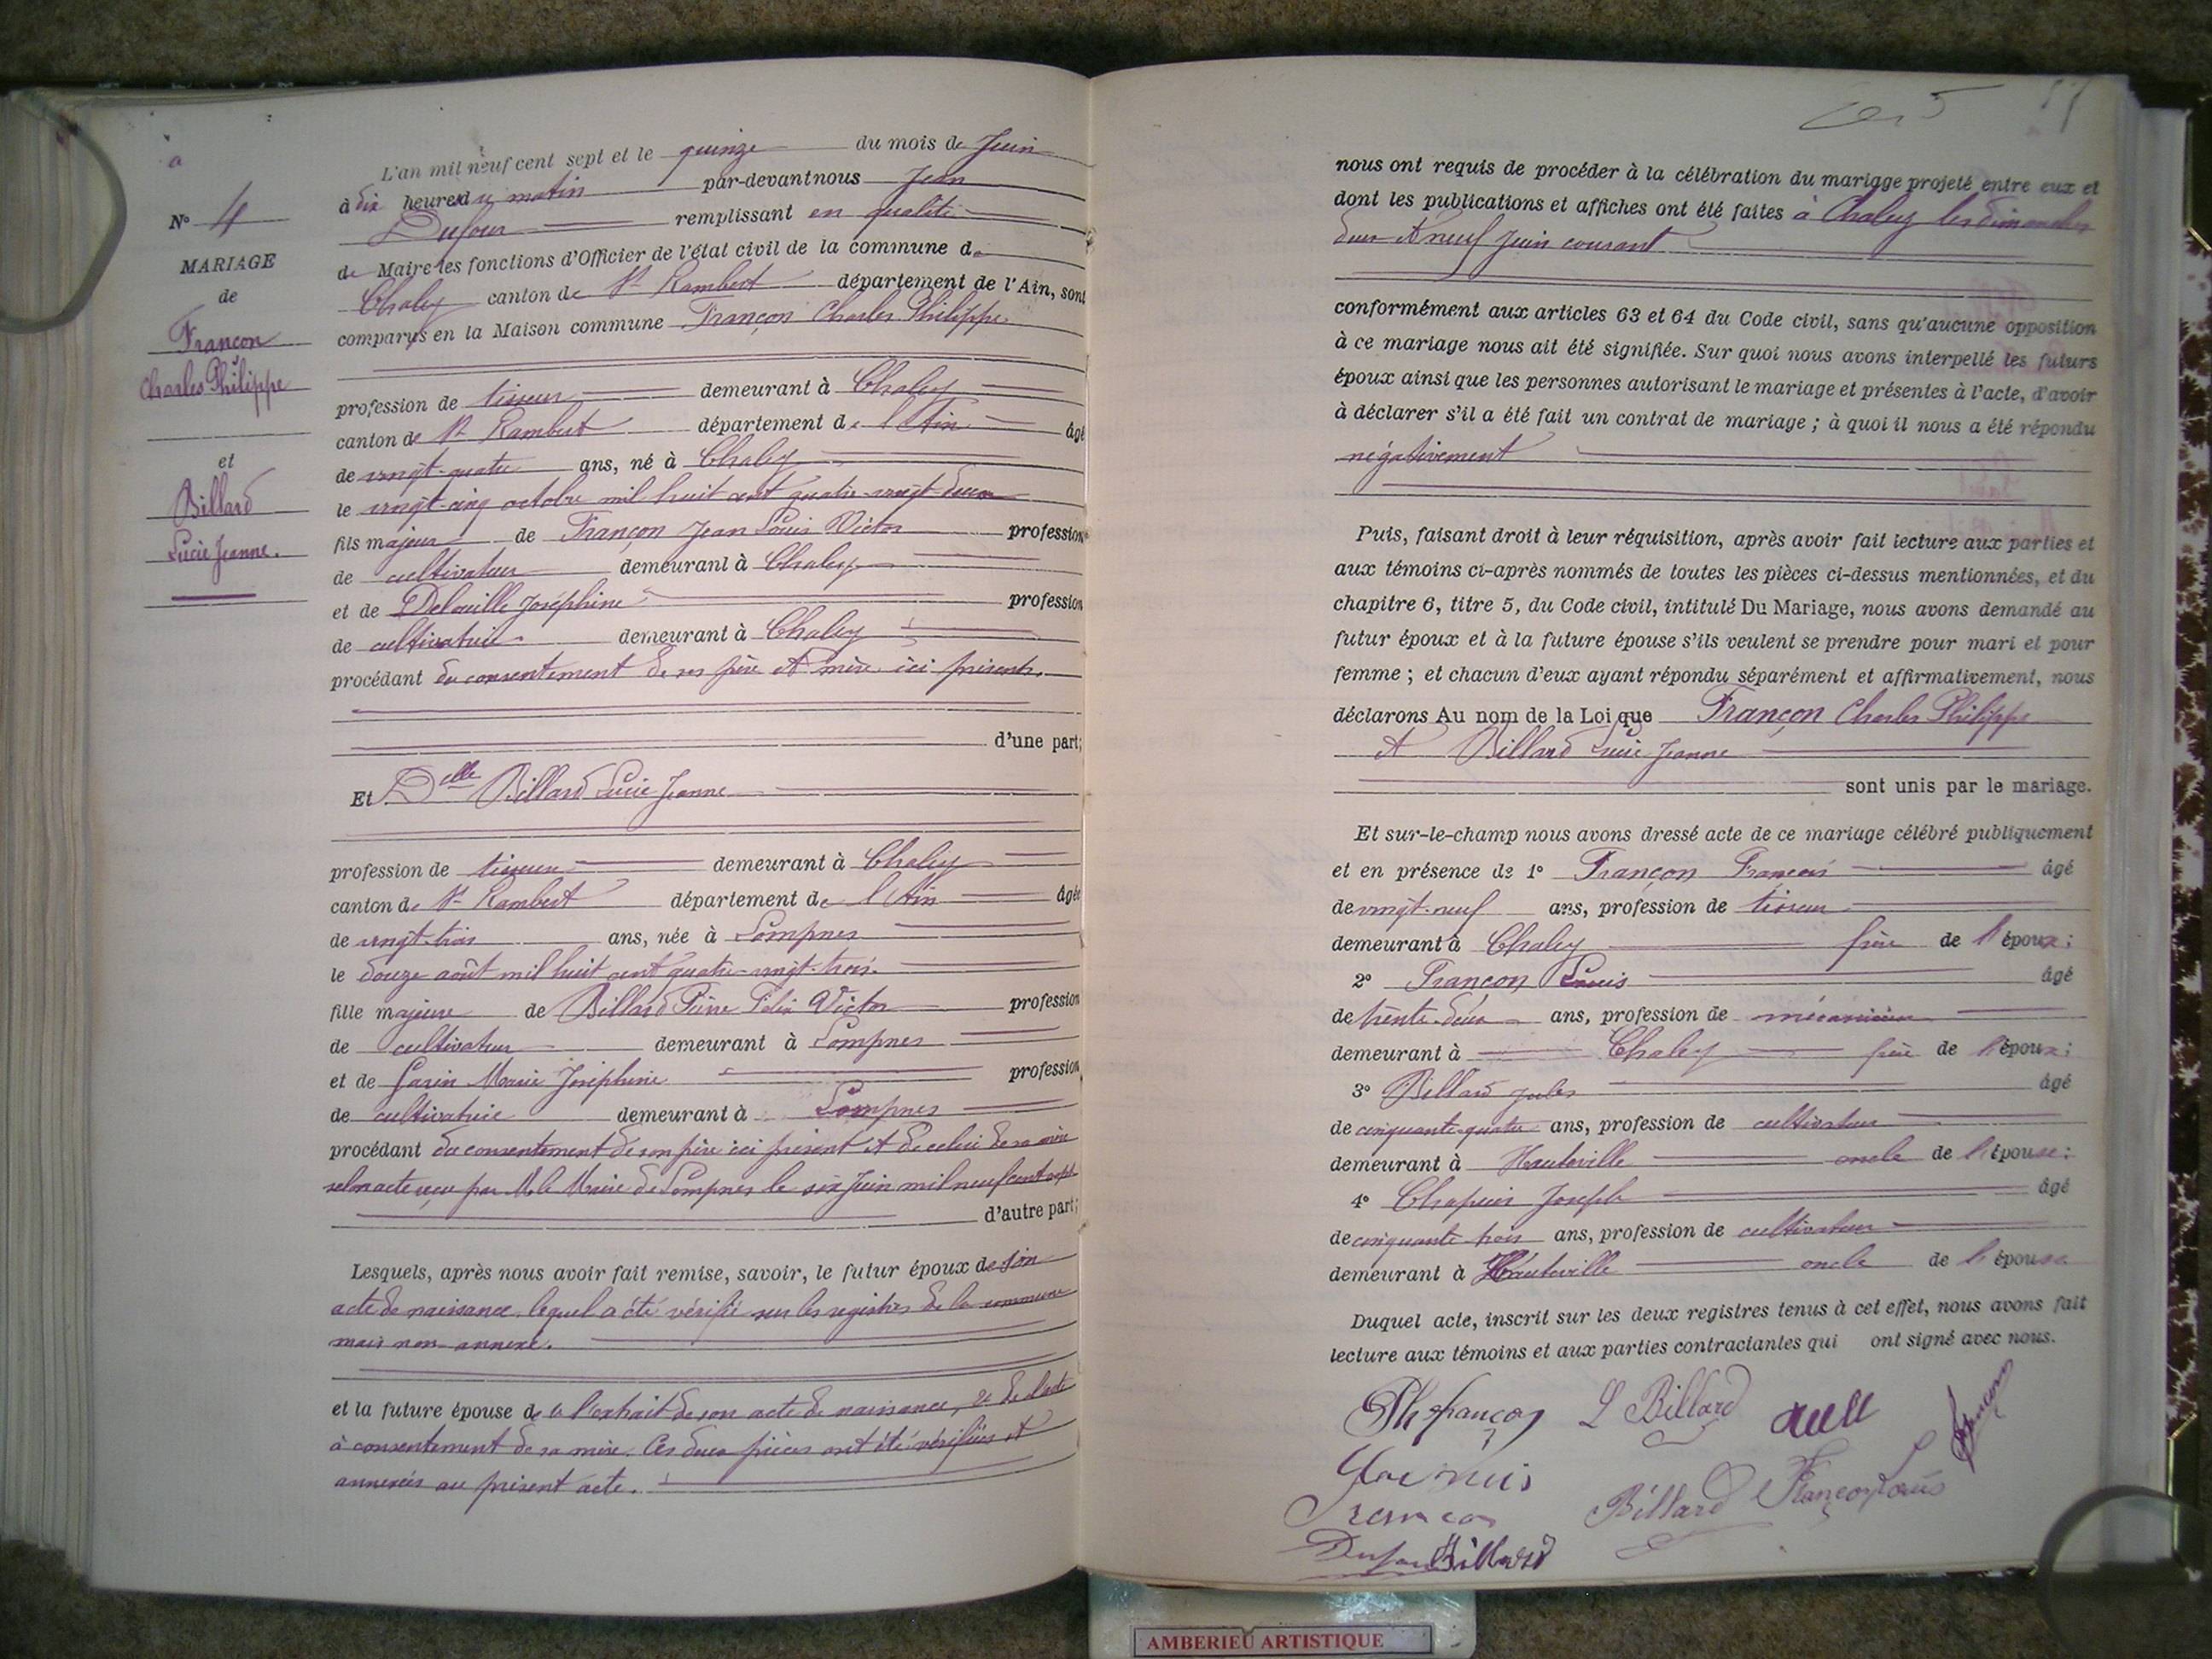 N° 4
MARIAGE
de
Françon
Charles Philippe
et
Billard
Lucie Jeanne.
L'an mil neuf cent sept et le quinze du mois de Juin
à dix heures du matin par-devant nous Jean
Dufour remplissant en qualité
de Maire les fonctions d'Officier de l'état civil de la commune de
Chaley canton de St Rambert département de l'Ain, sont
comparus en la Maison commune Françon Charles Philippe
profession de tisseur demeurant à Chaley
canton de St Rambert département de l'Ain âgé
de vingt-quatre ans, né à Chaley
le vingt-cinq octobre mil huit cent quatre-vingt-deux
fils majeur de Françon Jean Louis Victor profession
de cultivateur demeurant à Chaley
et de Delouille Joséphine profession
de cultivatrice demeurant à Chaley
procédant du consentement de ses père et mère ici présents.
d'une part;
Et Delle Billard Lucie Jeanne
profession de tisseuse demeurant à Chaley
canton de St Rambert département de l'Ain âgée
de vingt-trois ans, née à Lompnes
le douze août mil huit cent quatre-vingt-trois.
fille majeure de Billard Pierre Félix Victor profession
de cultivateur demeurant à Lompnes
et de Garin Marie Joséphine profession
de cultivatrice demeurant à Lompnes
procédant du consentement de son père ici présent et de celui de sa mère
selon acte reçu par M. le Maire de Lompnes le six Juin mil neuf cent sept
d'autre part;
Lesquels, après nous avoir fait remise, savoir, le futur époux de son
acte de naissance, lequel a été vérifié sur les registres de la commune
mais non annexé.
et la future épouse de l'extrait de son acte de naissance, 2° de l'acte
à consentement de sa mère. Ces deux pièces ont été vérifiées et
annexées au présent acte.
nous ont requis de procéder à la célébration du mariage projeté entre eux et
dont les publications et affiches ont été faites à Chaley les dimanches
deux et neuf Juin courant
conformément aux articles 63 et 64 du Code civil, sans qu'aucune opposition
à ce mariage nous ait été signifiée. Sur quoi nous avons interpellé les futurs
époux ainsi que les personnes autorisant le mariage et présentes à l'acte, d'avoir
à déclarer s'il a été fait un contrat de mariage ; à quoi il nous a été répondu
négativement
Puis, faisant droit à leur réquisition, après avoir fait lecture aux parties et
aux témoins ci-après nommés de toutes les pièces ci-dessus mentionnées, et du
chapitre 6, titre 5, du Code civil, intitulé Du Mariage, nous avons demandé au
futur époux et à la future épouse s'ils veulent se prendre pour mari et pour
femme ; et chacun d'eux ayant répondu séparément et affirmativement, nous
déclarons Au nom de la Loi que Françon Charles Philippe
et Billard Lucie Jeanne
sont unis par le mariage.
Et sur-le-champ nous avons dressé acte de ce mariage célébré publiquement
et en présence de 1° Françon François âgé
de vingt-neuf ans, profession de tisseur
demeurant à Chaley frère de l'époux;
2° Françon Louis âgé
de trente-deux ans, profession de mécanicien
demeurant à Chaley frère de l'époux;
3° Billard Jules âgé
de cinquante-quatre ans, profession de cultivateur
demeurant à Hauteville oncle de l'épouse;
4° Chapuis Joseph âgé
de cinquante-trois ans, profession de cultivateur
demeurant à Hauteville oncle de l'épouse
Duquel acte, inscrit sur les deux registres tenus à cet effet, nous avons fait
lecture aux témoins et aux parties contractantes qui ont signé avec nous.
Ph françon L Billard
françon
Billard Françon Louis
Dufour Billard
AMBERIEU ARTISTIQUE